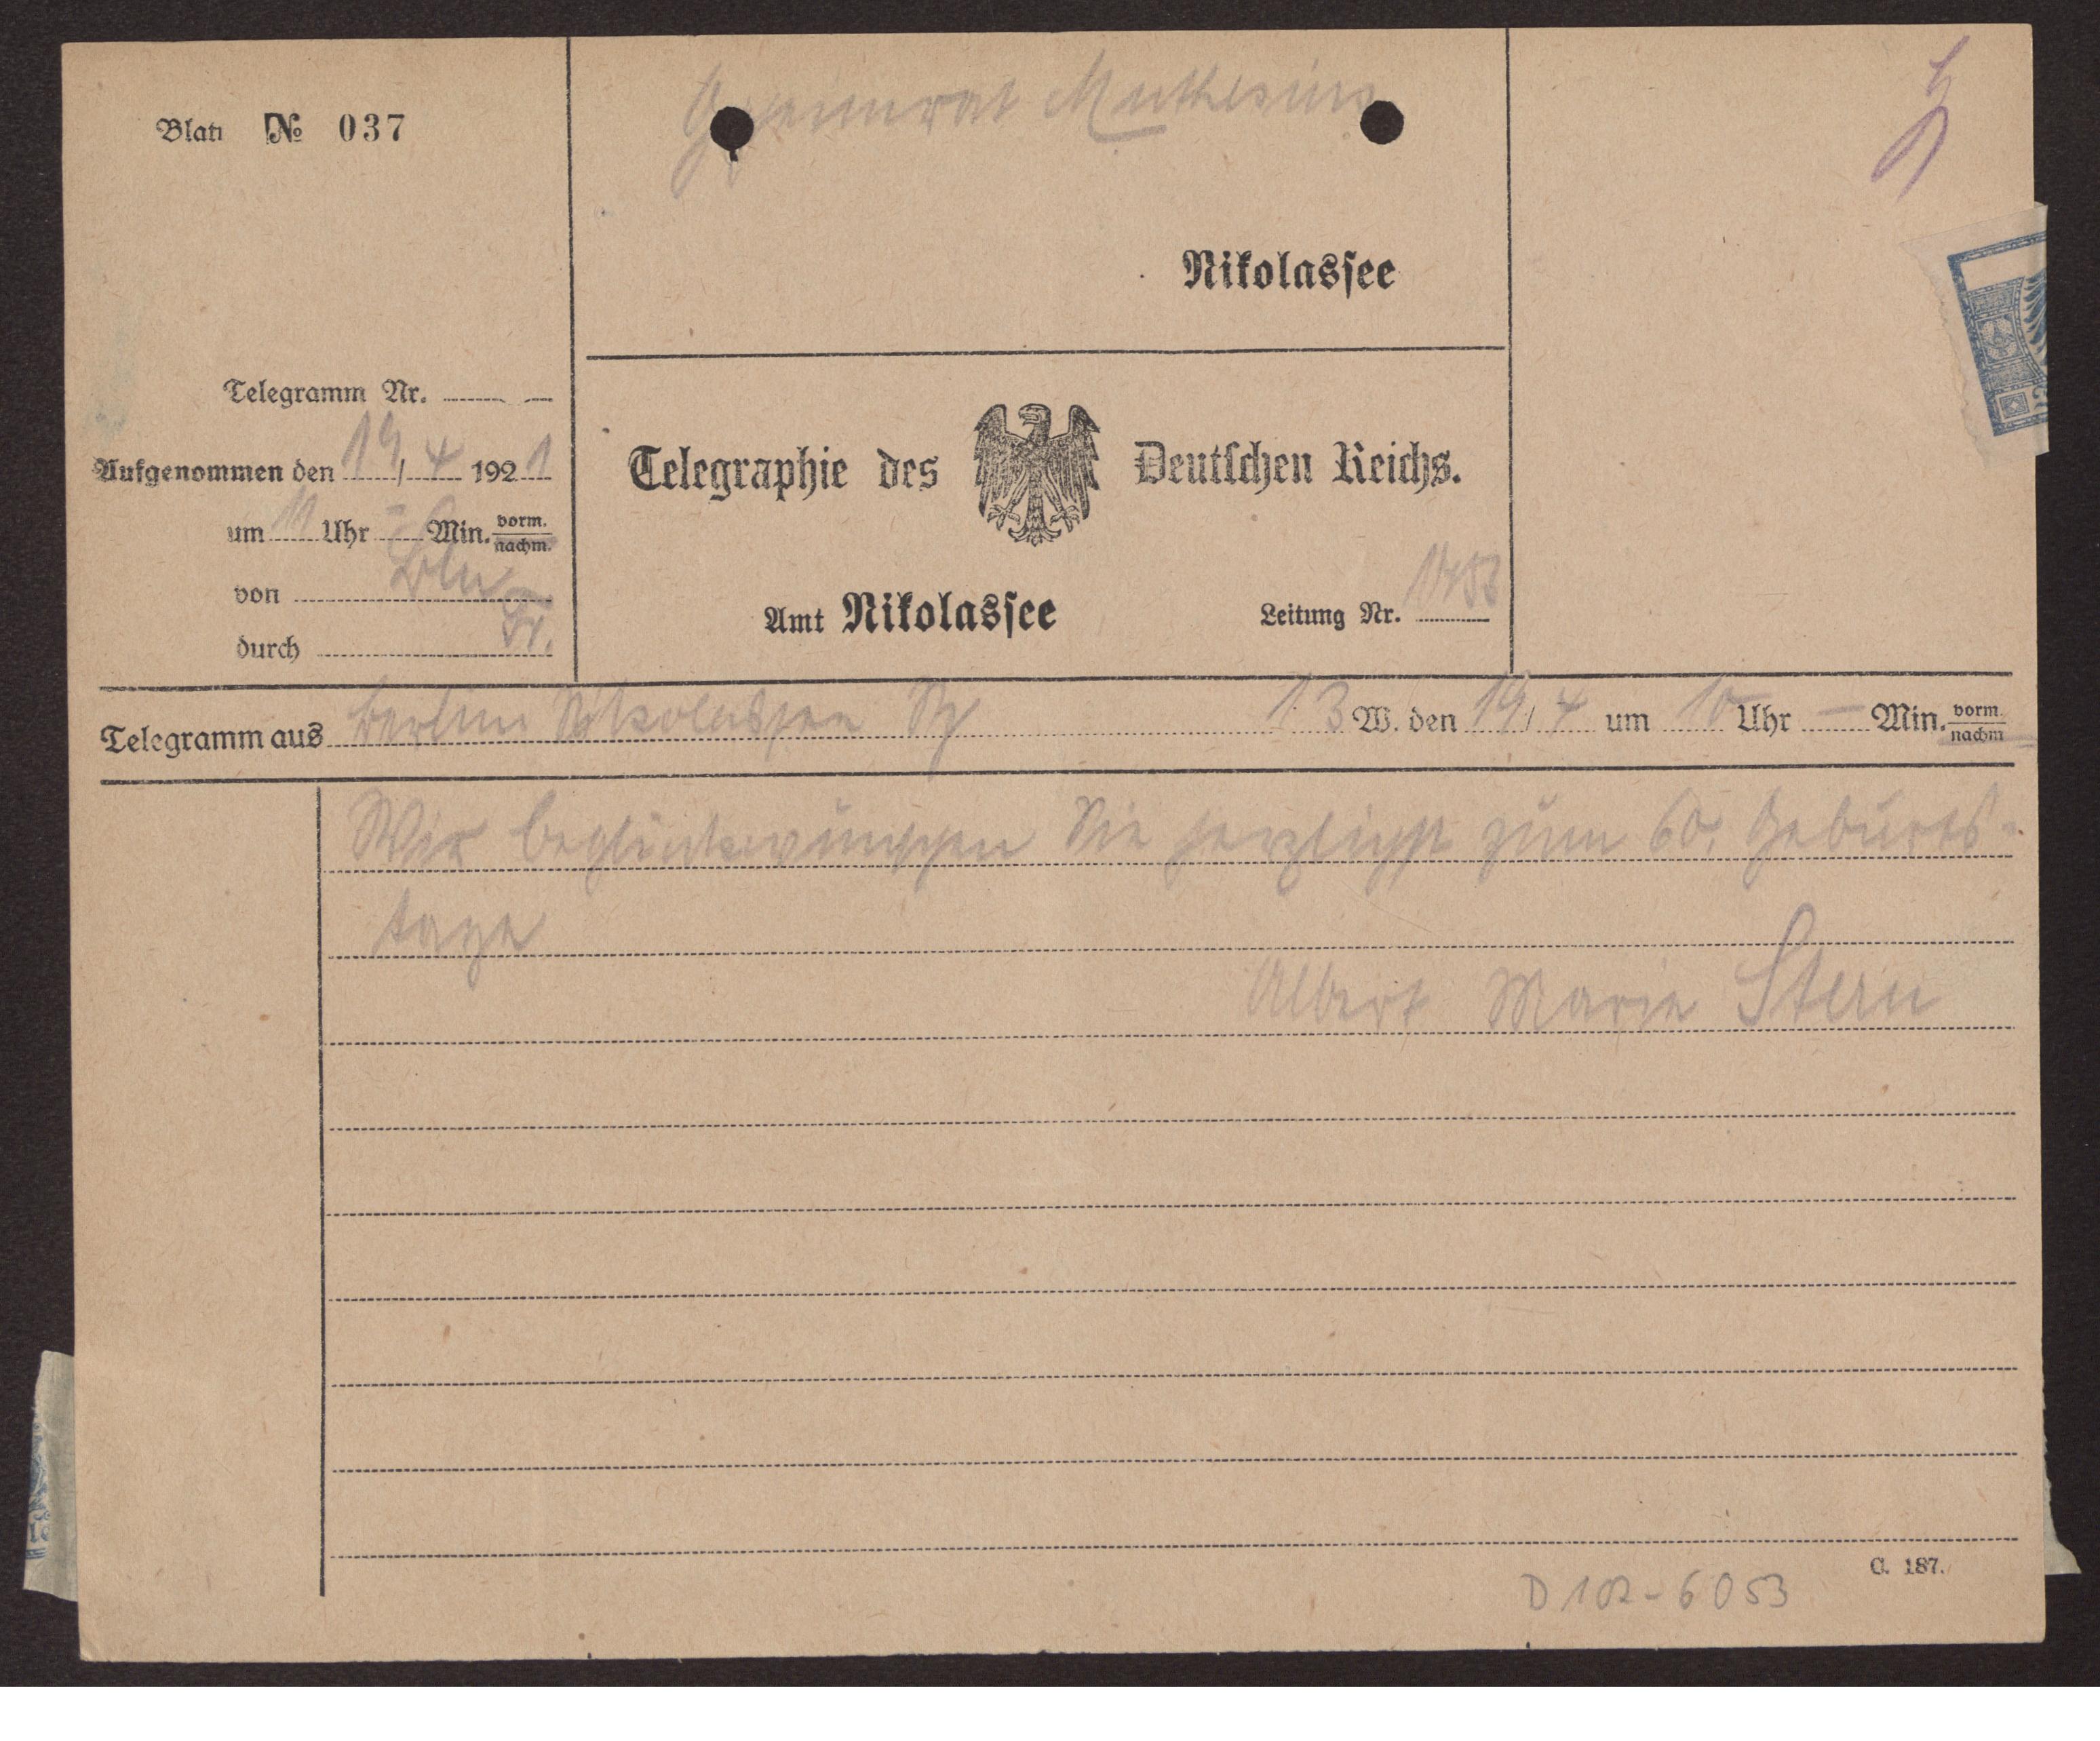 Blatt № 037
Geheimrat Muthesius
Nikolassee
Telegramm Nr.
Aufgenommen den 19/4 1921
um 11 Uhr - Min. vorm. nachm.
von Bln
durch
Telegraphie des Deutschen Reichs.
Amt Nikolassee Leitung Nr.
Telegramm aus Berlin Nikolassee 13 W. den 19/4 um 10 Uhr — Min. vorm. nachm
Wir beglückwünschen Sie herzlichst zum 60. Geburts-
tage
Albert Marie Stern
C. 187.
D 102-6053